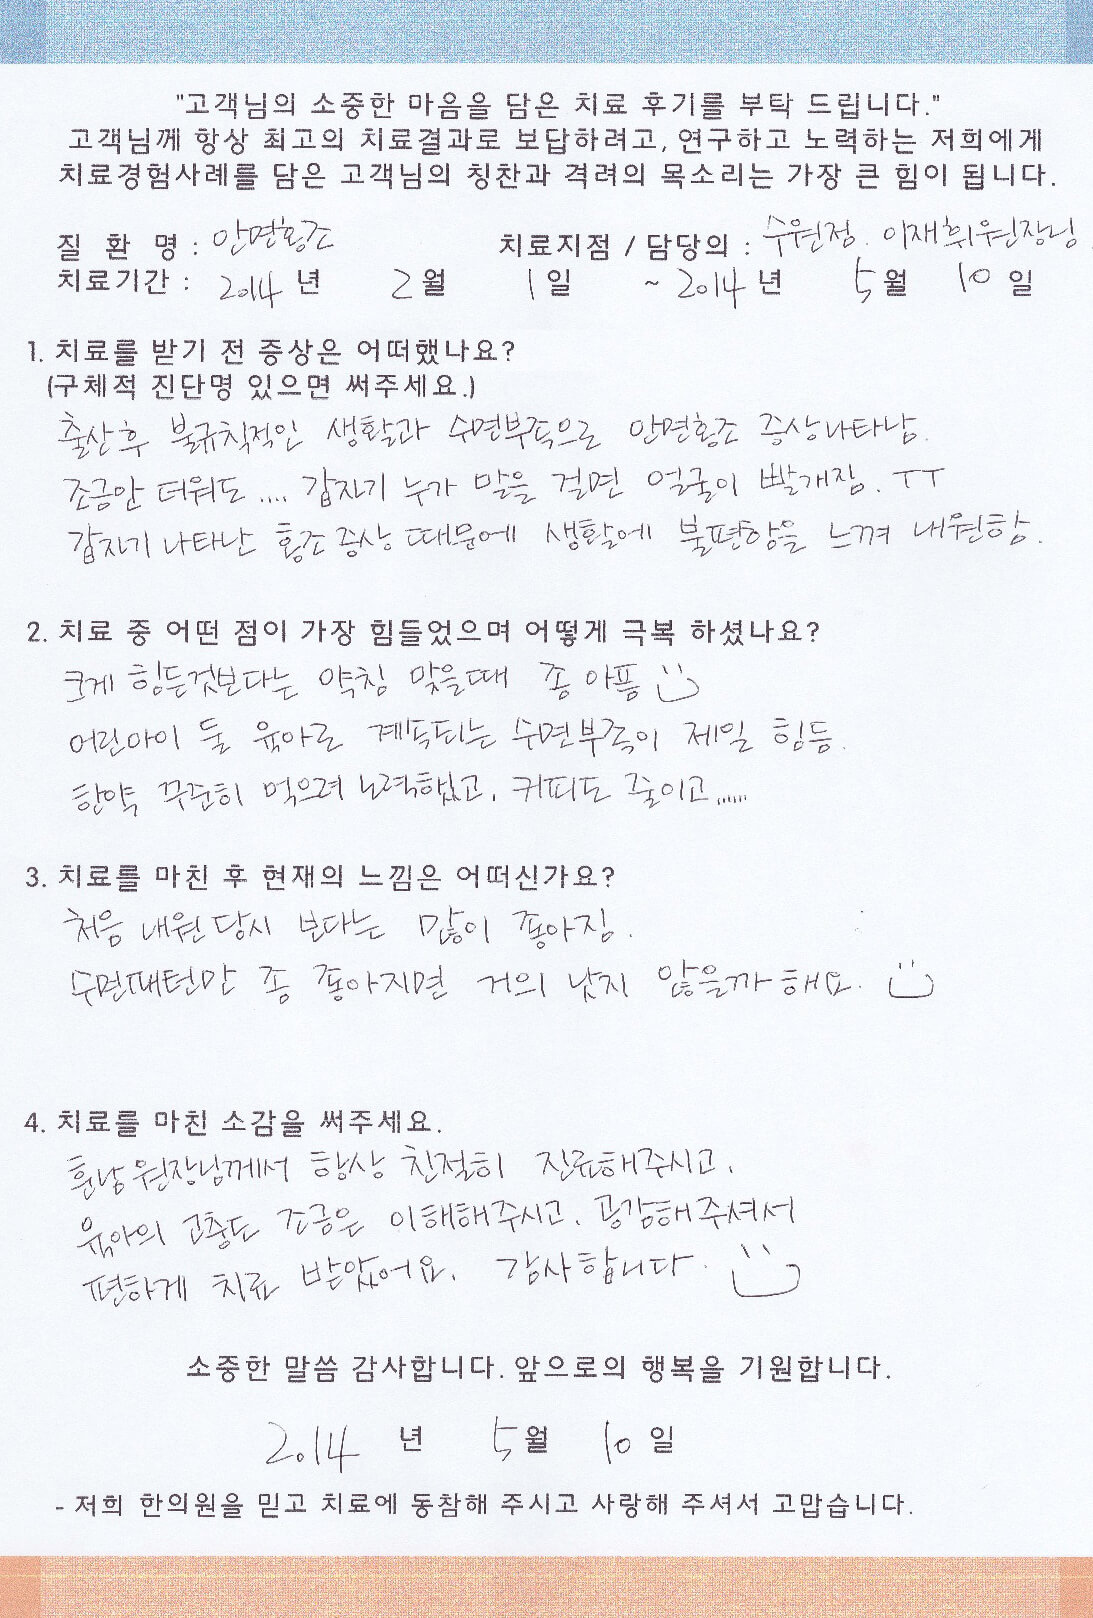 "고객님의 소중한 마음을 담은 치료 후기를 부탁 드립니다."
고객님께 항상 최고의 치료결과로 보답하려고, 연구하고 노력하는 저희에게
치료경험사례를 담은 고객님의 칭찬과 격려의 목소리는 가장 큰 힘이 됩니다.
질 환 명 : 안면홍조 치료지점 / 담당의 : 수원점. 이재휘원장님
치료기간 : 2014 년 2 월 1 일 ~ 2014 년 5 월 10 일
1. 치료를 받기 전 증상은 어떠했나요?
(구체적 진단명 있으면 써주세요.)
출산후 불규칙적인 생활과 수면부족으로 안면홍조 증상나타남.
조금만 더워도 .... 갑자기 누가 말을 걸면 얼굴이 빨개짐. ㅜㅜ
갑자기 나타난 홍조증상 때문에 생활에 불편함을 느껴 내원함.
2. 치료 중 어떤 점이 가장 힘들었으며 어떻게 극복 하셨나요?
크게 힘든것보다는 약침 맞을때 좀 아픔
어린아이 둘 육아로 계속되는 수면부족이 제일 힘듬.
한약 꾸준히 먹으려 노력했고, 커피도 줄이고......
3. 치료를 마친 후 현재의 느낌은 어떠신가요?
처음 내원 당시 보다는 많이 좋아짐.
수면패턴만 좀 좋아지면 거의 낫지 않을까 해요.
4. 치료를 마친 소감을 써주세요.
훈남 원장님께서 항상 친절히 진료해주시고,
육아의 고충도 조금은 이해해주시고, 공감해주셔서
편하게 치료 받았어요. 감사합니다.
소중한 말씀 감사합니다. 앞으로의 행복을 기원합니다.
2014 년 5 월 10 일
- 저희 한의원을 믿고 치료에 동참해 주시고 사랑해 주셔서 고맙습니다.